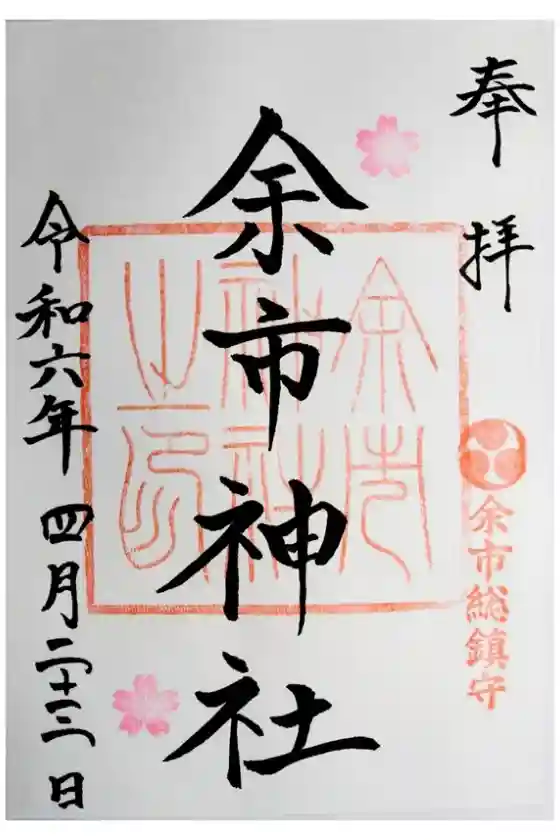 奉拝
余市総鎮守
余市神社
余市神社之印
令和六年四月二十三日